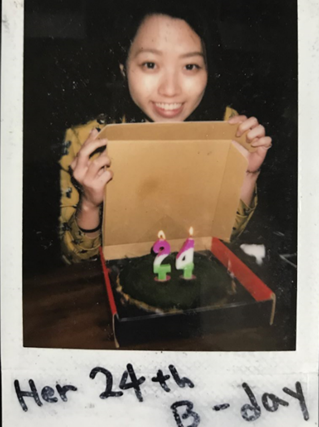 24
Her 24th
B-day